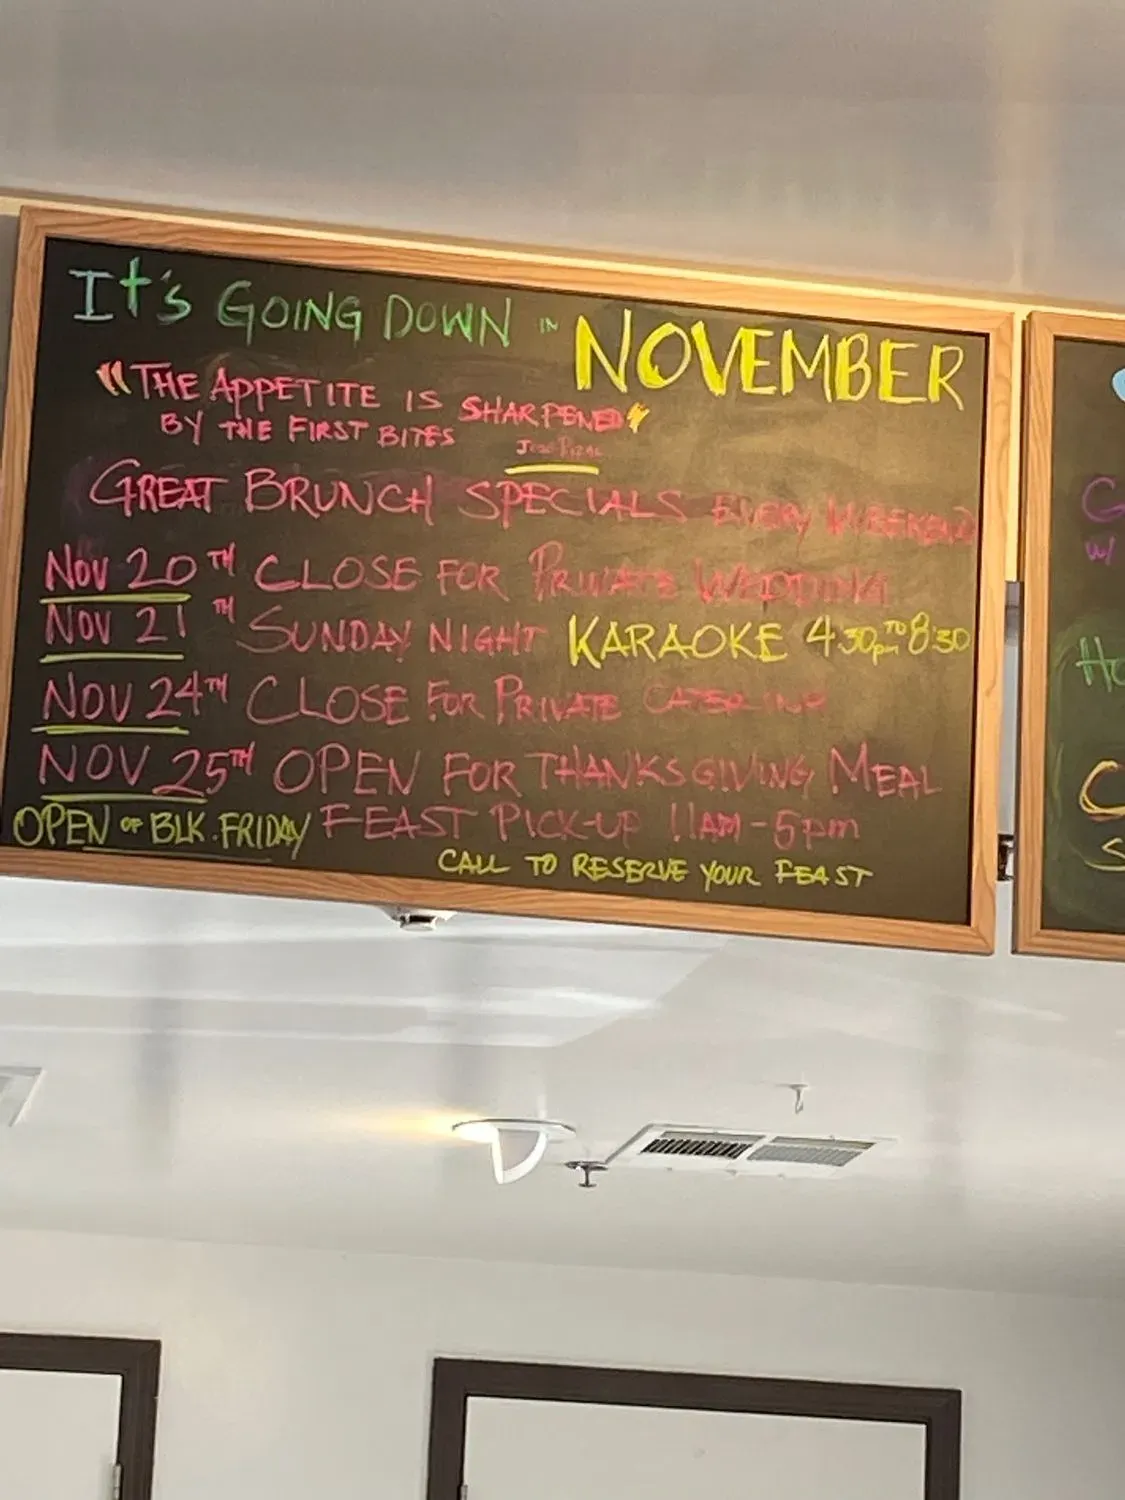 It's GOING DOWN IN NOVEMBER
"THE APPETITE IS SHARPENED
BY THE FIRST BITES"
Jose Rizal
GREAT BRUNCH SPECIALS EVERY WEEKEND
NOV 20TH CLOSE FOR PRIVATE WEDDING
NOV 21TH SUNDAY NIGHT KARAOKE 4:30pm TO 8:30
NOV 24TH CLOSE FOR PRIVATE CATERING
NOV 25TH OPEN FOR THANKSGIVING MEAL
FEAST PICK-UP 11AM-5pm
OPEN OF BLK. FRIDAY
CALL TO RESERVE YOUR FEAST
G
w/
Ho
C
S